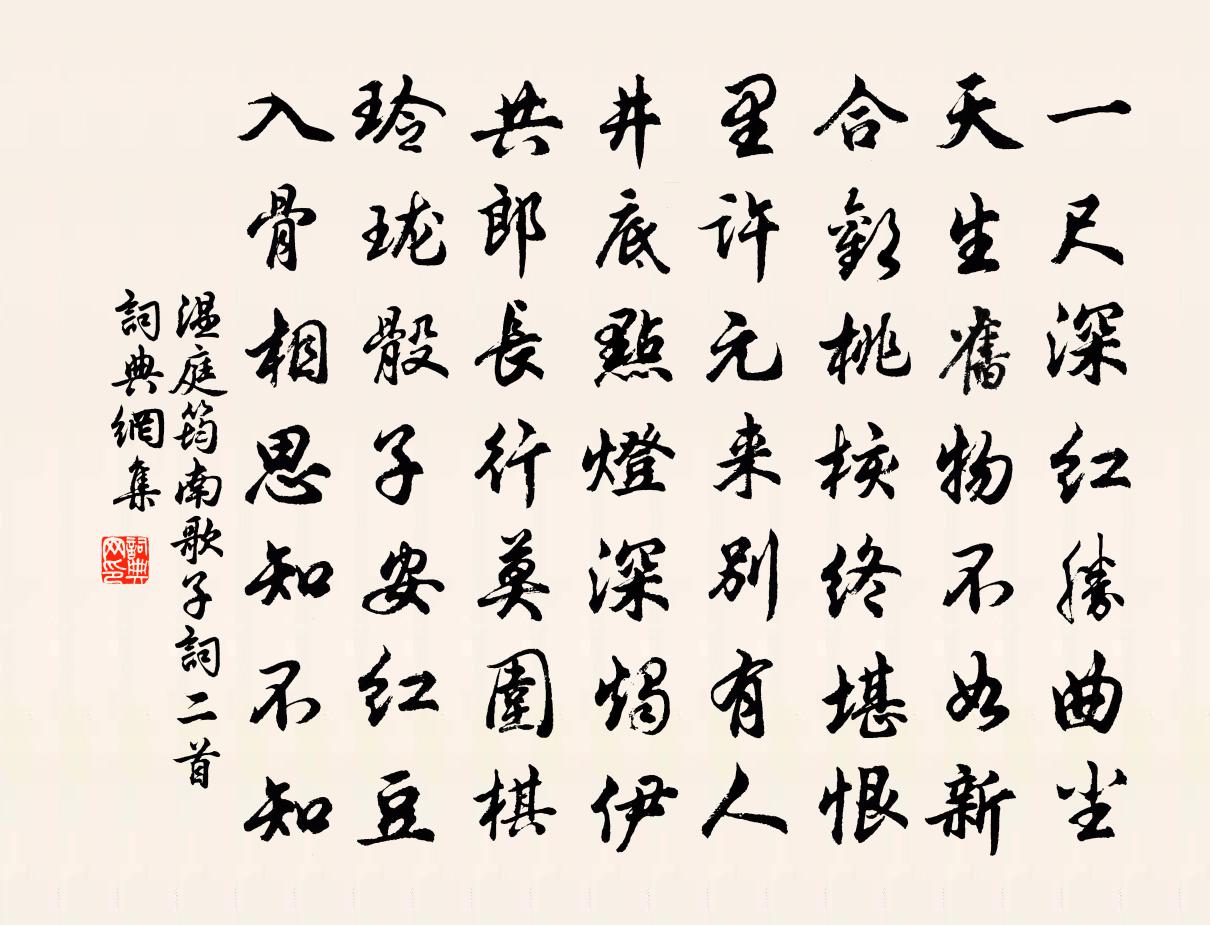 一尺深红勝曲尘
天生舊物不如新
合歡桃核终堪恨
里許元来别有人
井底點燈深燭伊
共郎長行莫圍棋
玲珑骰子安红豆
入骨相思知不知
温庭筠南歌子詞二首
詞典網集
詞典网印